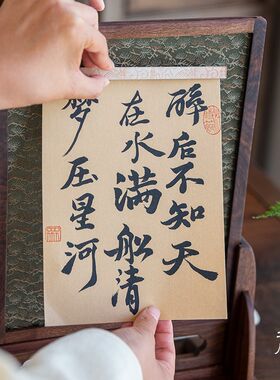 醉后不知天
在水满船清
梦压星河